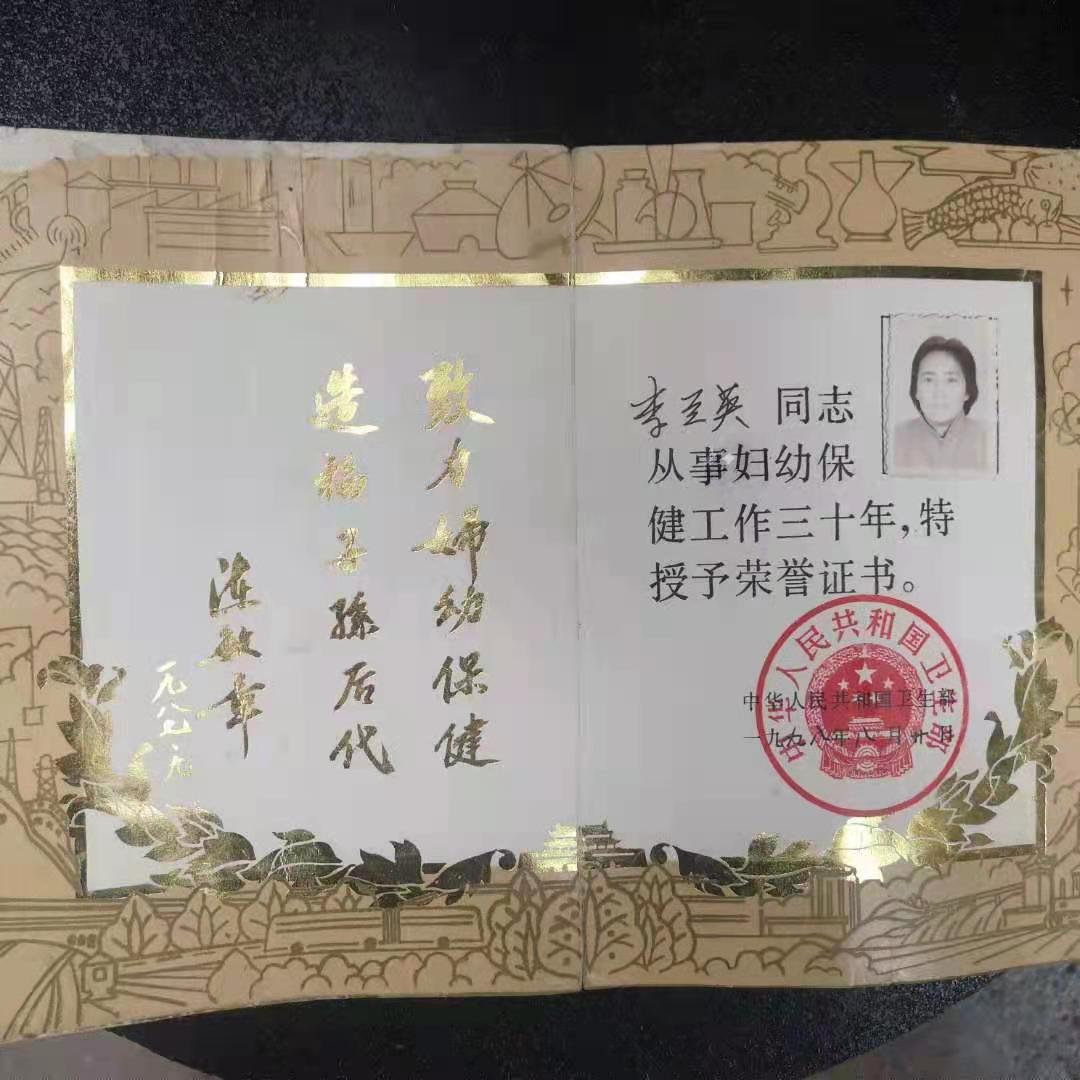 致力妇幼保健
造福子孙后代
陈敏章
李玉英 同志
从事妇幼保
健工作三十年，特
授予荣誉证书。
中华人民共和国卫生部
一九九八年八月廿日
中华人民共和国卫生部